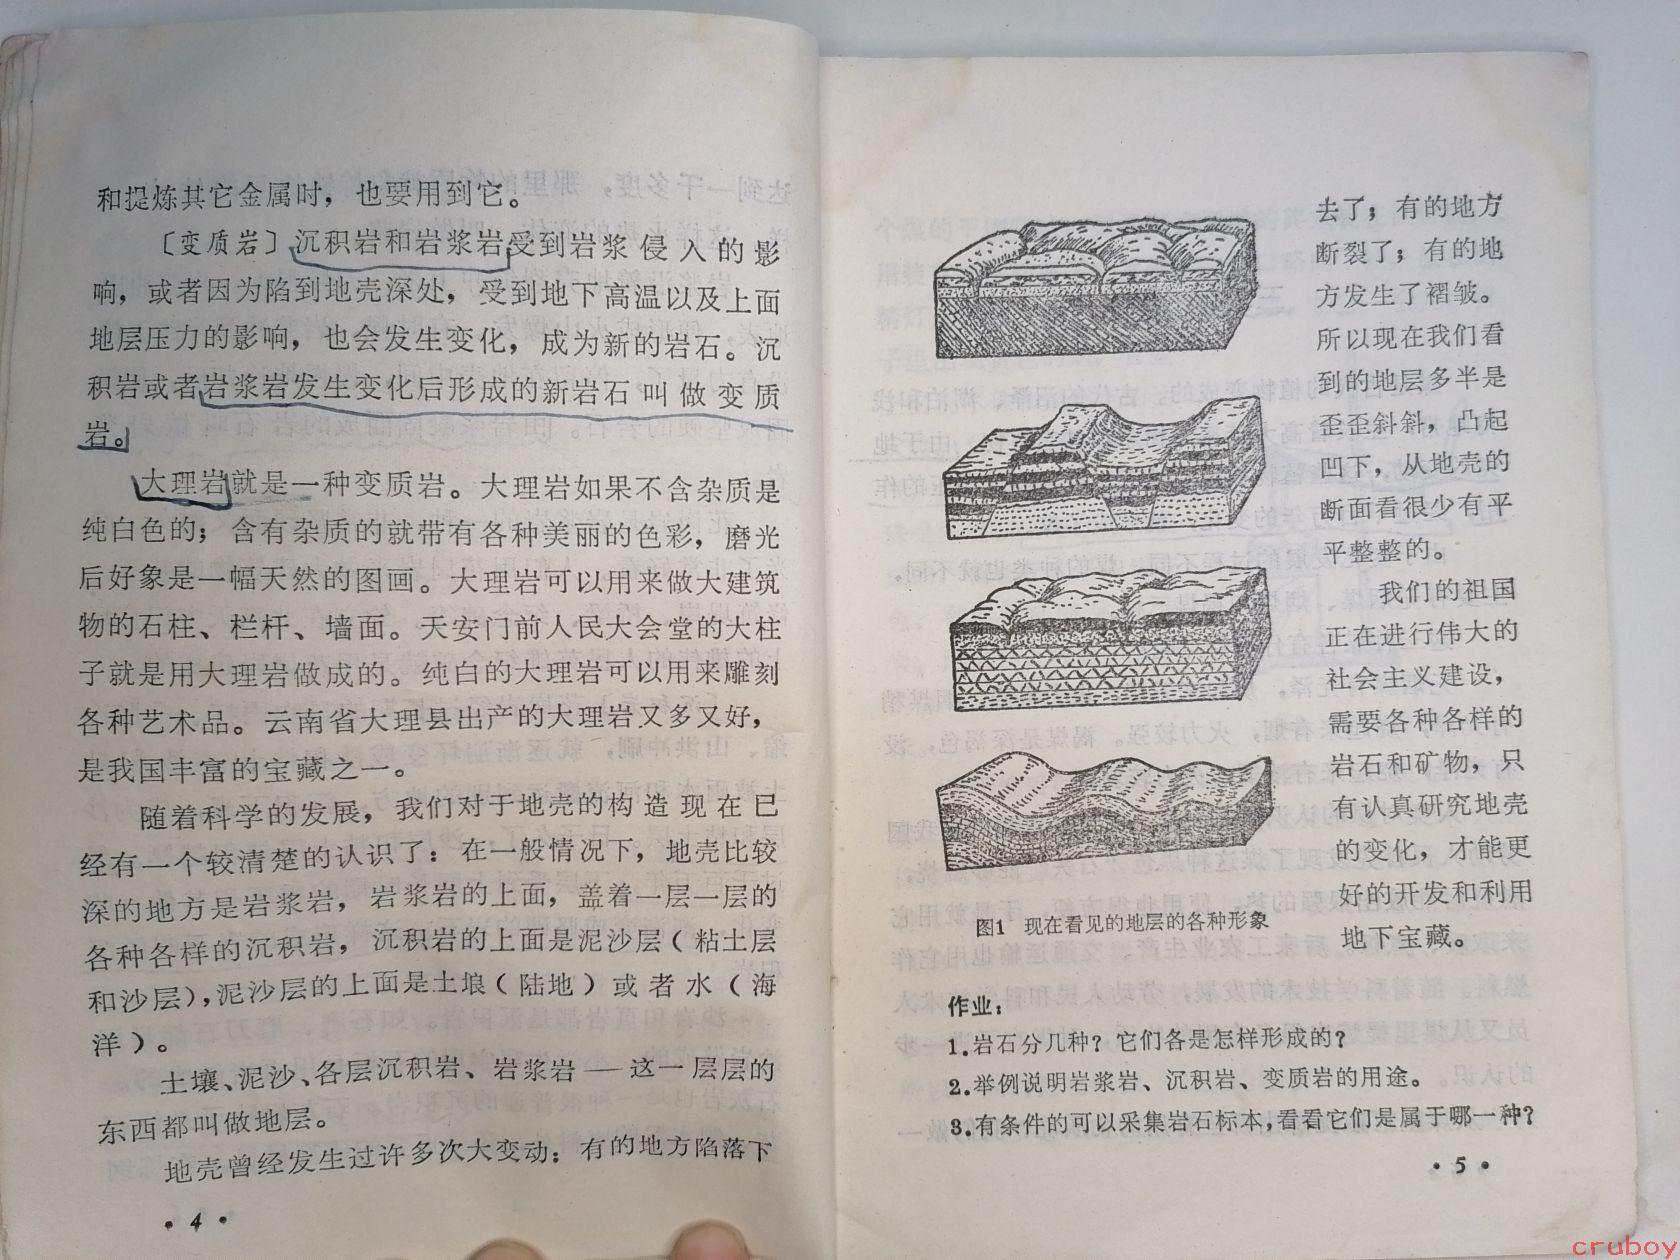 和提炼其它金属时，也要用到它。
〔变质岩〕沉积岩和岩浆岩受到岩浆侵入的影
响，或者因为陷到地壳深处，受到地下高温以及上面
地层压力的影响，也会发生变化，成为新的岩石。沉
积岩或者岩浆岩发生变化后形成的新岩石叫做变质
岩。
大理岩就是一种变质岩。大理岩如果不含杂质是
纯白色的；含有杂质的就带有各种美丽的色彩，磨光
后好象是一幅天然的图画。大理岩可以用来做大建筑
物的石柱、栏杆、墙面。天安门前人民大会堂的大柱
子就是用大理岩做成的。纯白的大理岩可以用来雕刻
各种艺术品。云南省大理县出产的大理岩又多又好，
是我国丰富的宝藏之一。
随着科学的发展，我们对于地壳的构造现在已
经有一个较清楚的认识了：在一般情况下，地壳比较
深的地方是岩浆岩，岩浆岩的上面，盖着一层一层的
各种各样的沉积岩，沉积岩的上面是泥沙层（粘土层
和沙层），泥沙层的上面是土埌（陆地）或者水（海
洋）。
土壤、泥沙、各层沉积岩、岩浆岩—这一层层的
东西都叫做地层。
地壳曾经发生过许多次大变动：有的地方陷落下
·4·
去了；有的地方
断裂了；有的地
方发生了褶皱。
所以现在我们看
到的地层多半是
歪歪斜斜，凸起
凹下，从地壳的
断面看很少有平
平整整的。
我们的祖国
正在进行伟大的
社会主义建设，
需要各种各样的
岩石和矿物，只
有认真研究地壳
的变化，才能更
好的开发和利用
地下宝藏。
图1 现在看见的地层的各种形象
作业：
1.岩石分几种？它们各是怎样形成的？
2.举例说明岩浆岩、沉积岩、变质岩的用途。
3.有条件的可以采集岩石标本，看看它们是属于哪一种？
·5·
cruboy